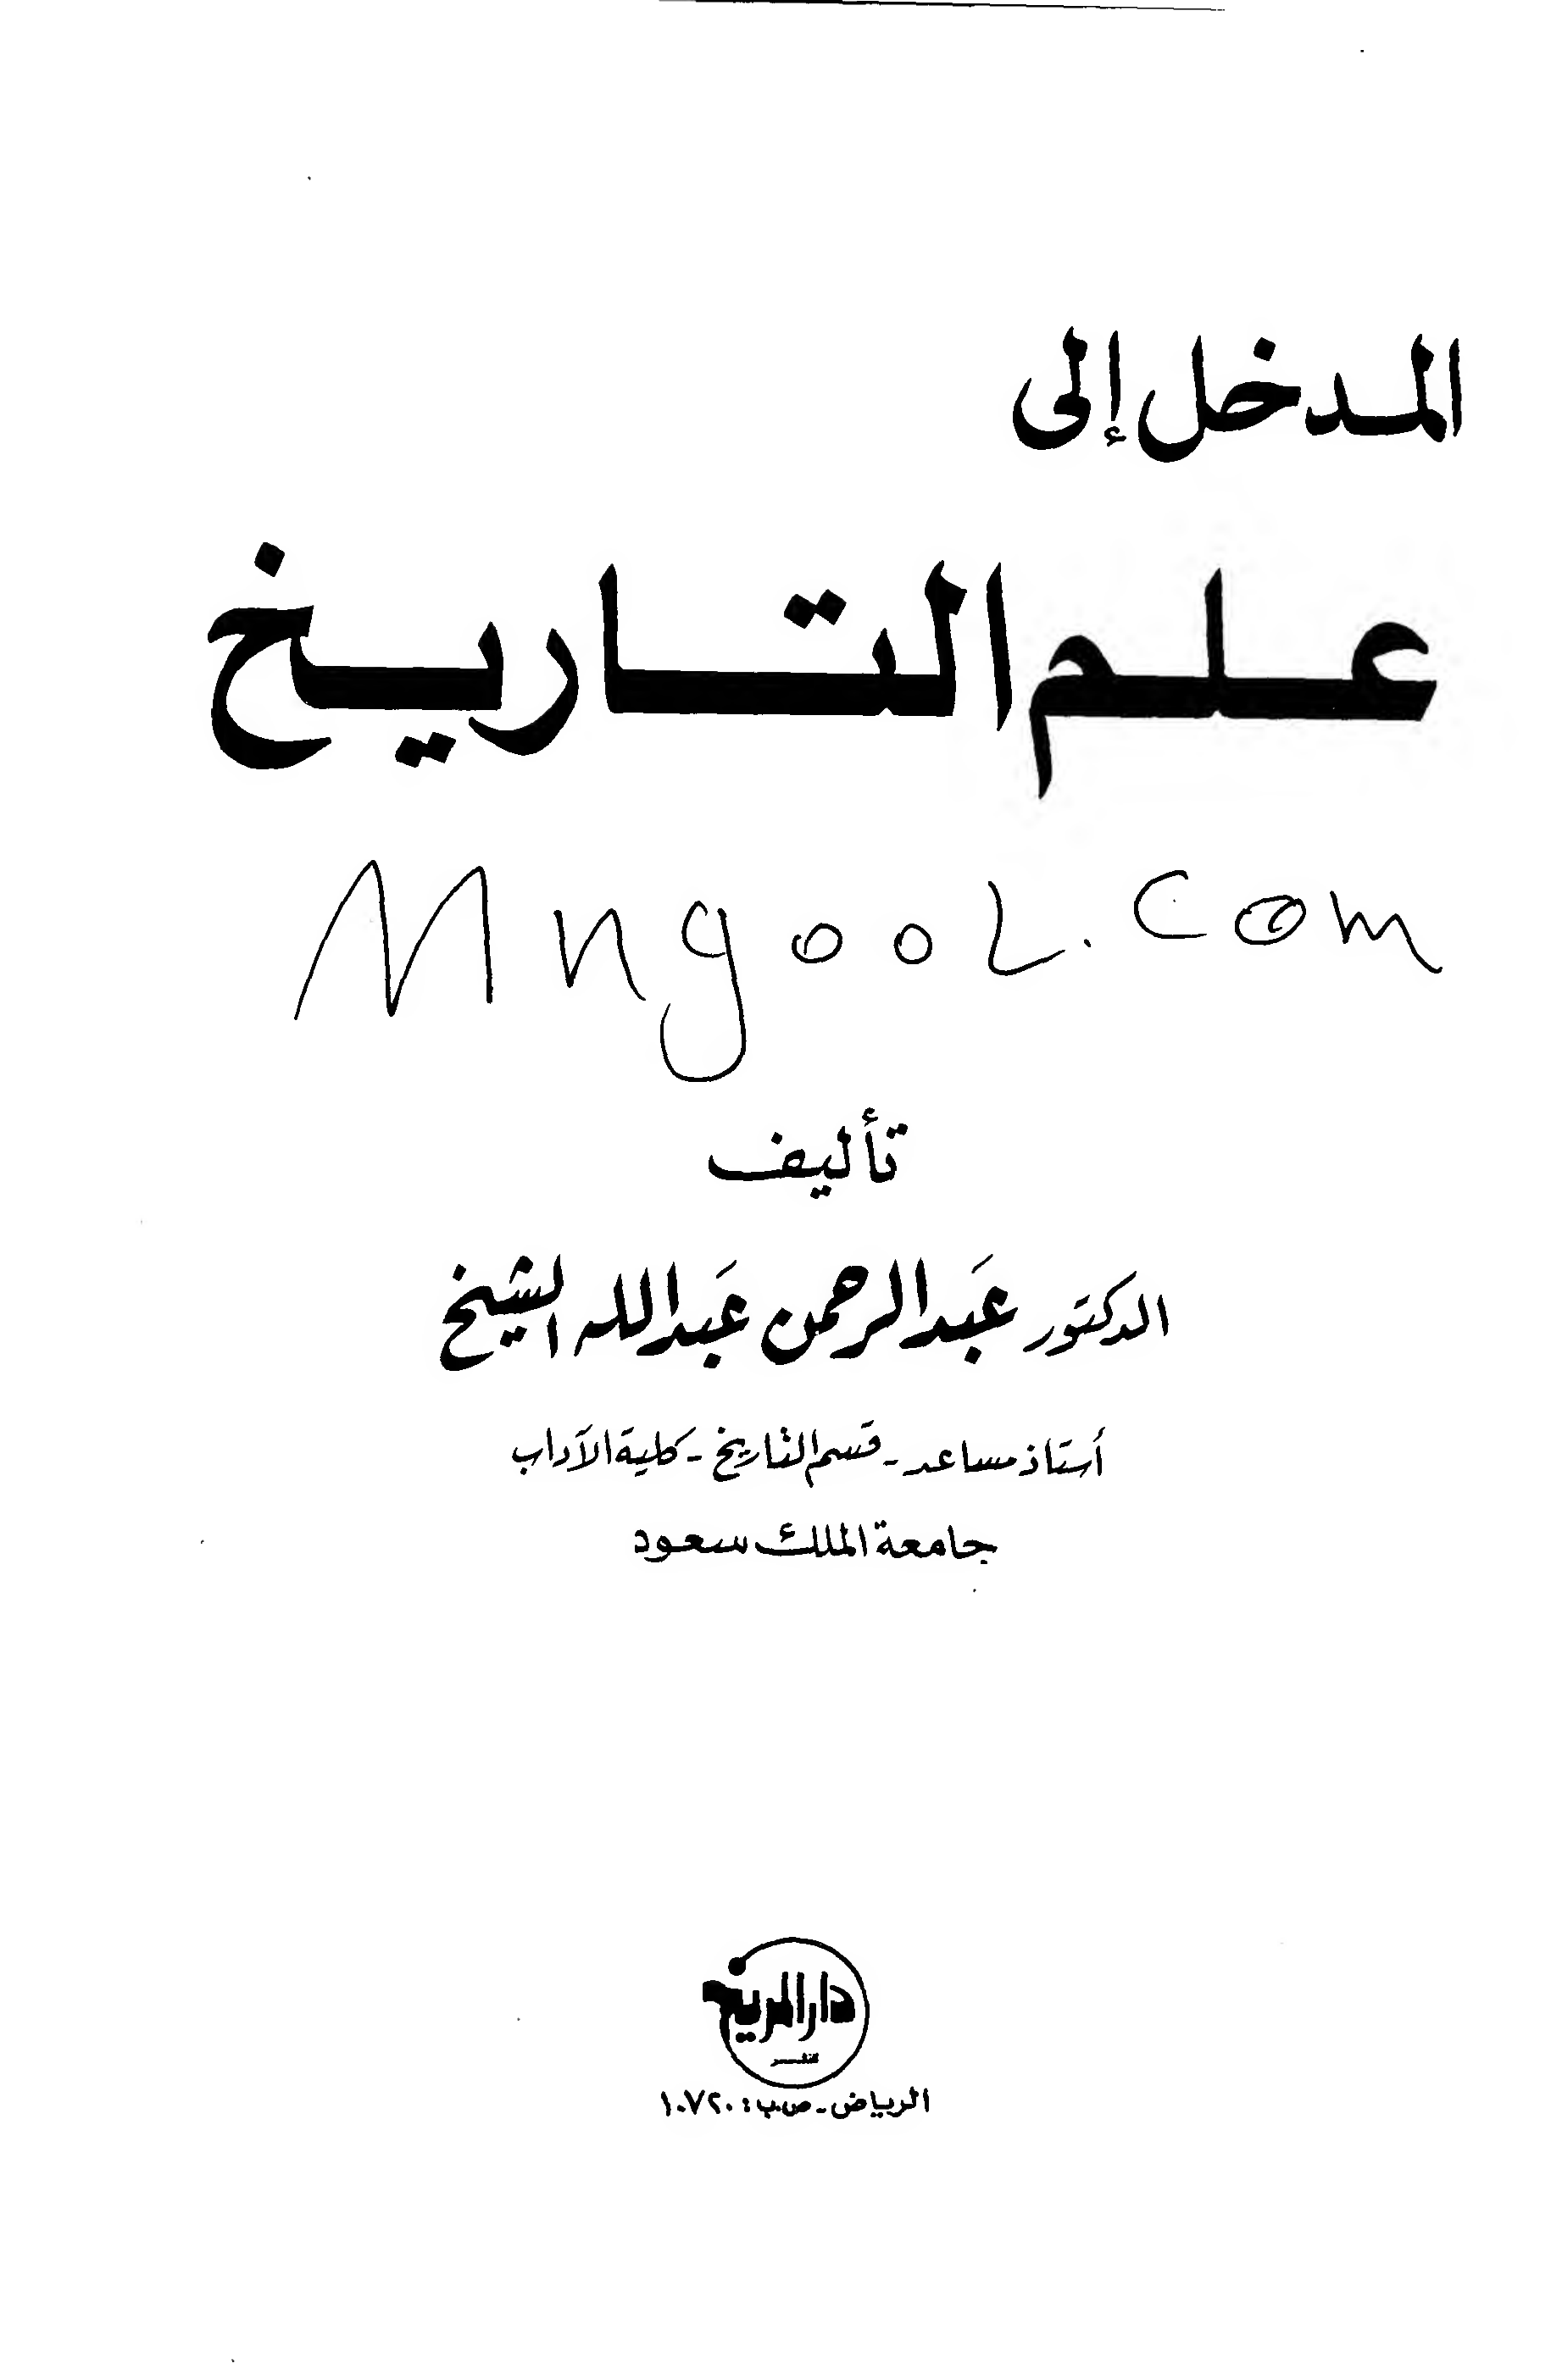 المدخل إلى
علم التاريخ
Mngool.com
تأليف
الدكتور عَبدالرحمن عَبدالله الشيخ
أستاذ مساعد - قسم التاريخ - كلية الآداب
جامعة الملك سعود
دار المريخ
للنشر
الرياض - ص.ب: ١٠٧٢٠